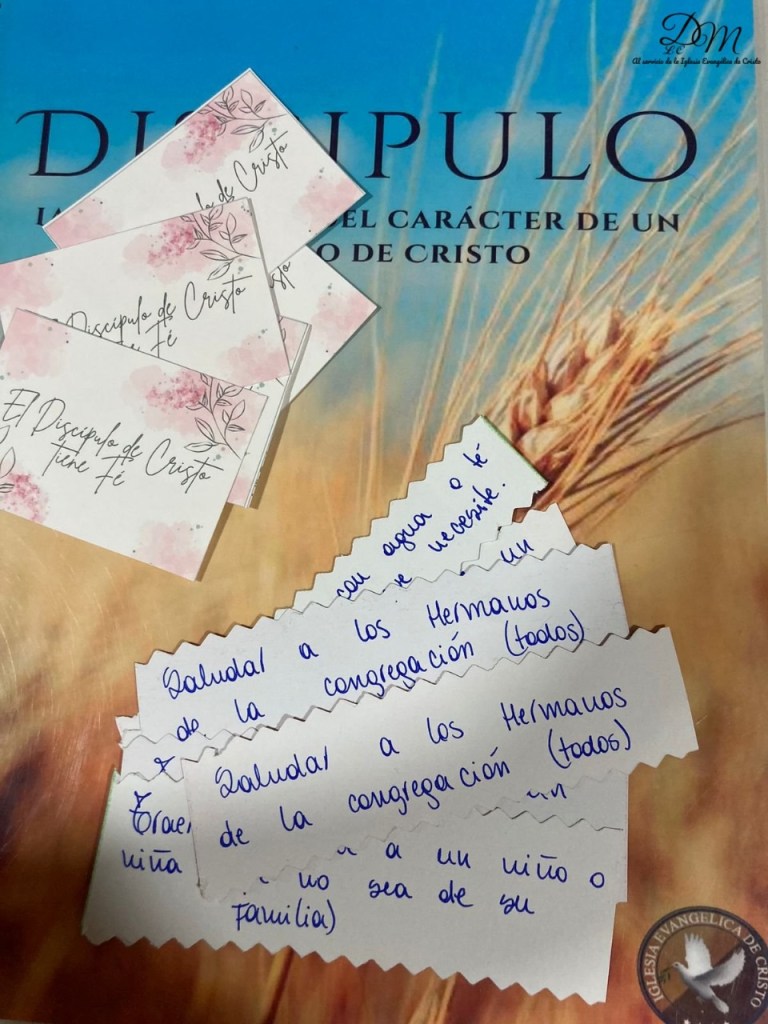 DM
L.E
Al servicio de la Iglesia Evangélica de Cristo
EL CARÁCTER DE UN
DE CRISTO
de Cristo
Discípulo de Cristo
Fé
El Discípulo de Cristo
Tiene Fé
con agua o té
necesite.
un
Saludar a los Hermanos
de la congregación (todos)
Saludar a los Hermanos
de la congregación (todos)
niña a un niño o
no sea de su
Familia)
IGLESIA EVANGELICA DE CRISTO